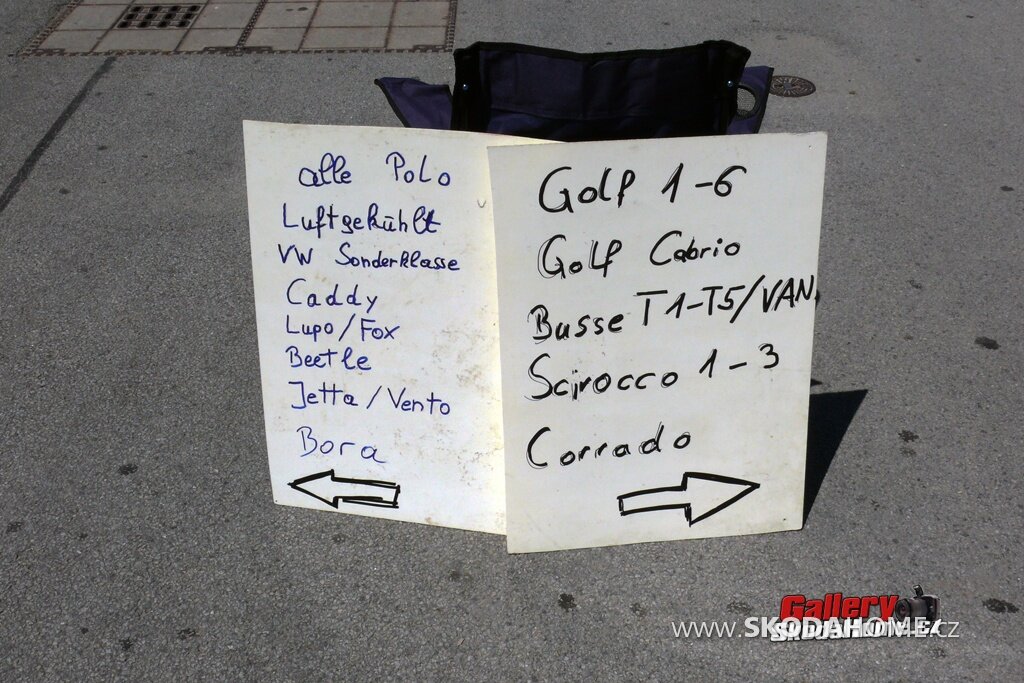 alle Polo
Luftgekühlt
VW Sonderklasse
Caddy
Lupo/Fox
Beetle
Jetta/Vento
Bora
Golf 1-6
Golf Cabrio
Busse T1-T5/VAN
Scirocco 1-3
Corrado
Gallery
www.SKODAHOME.cz